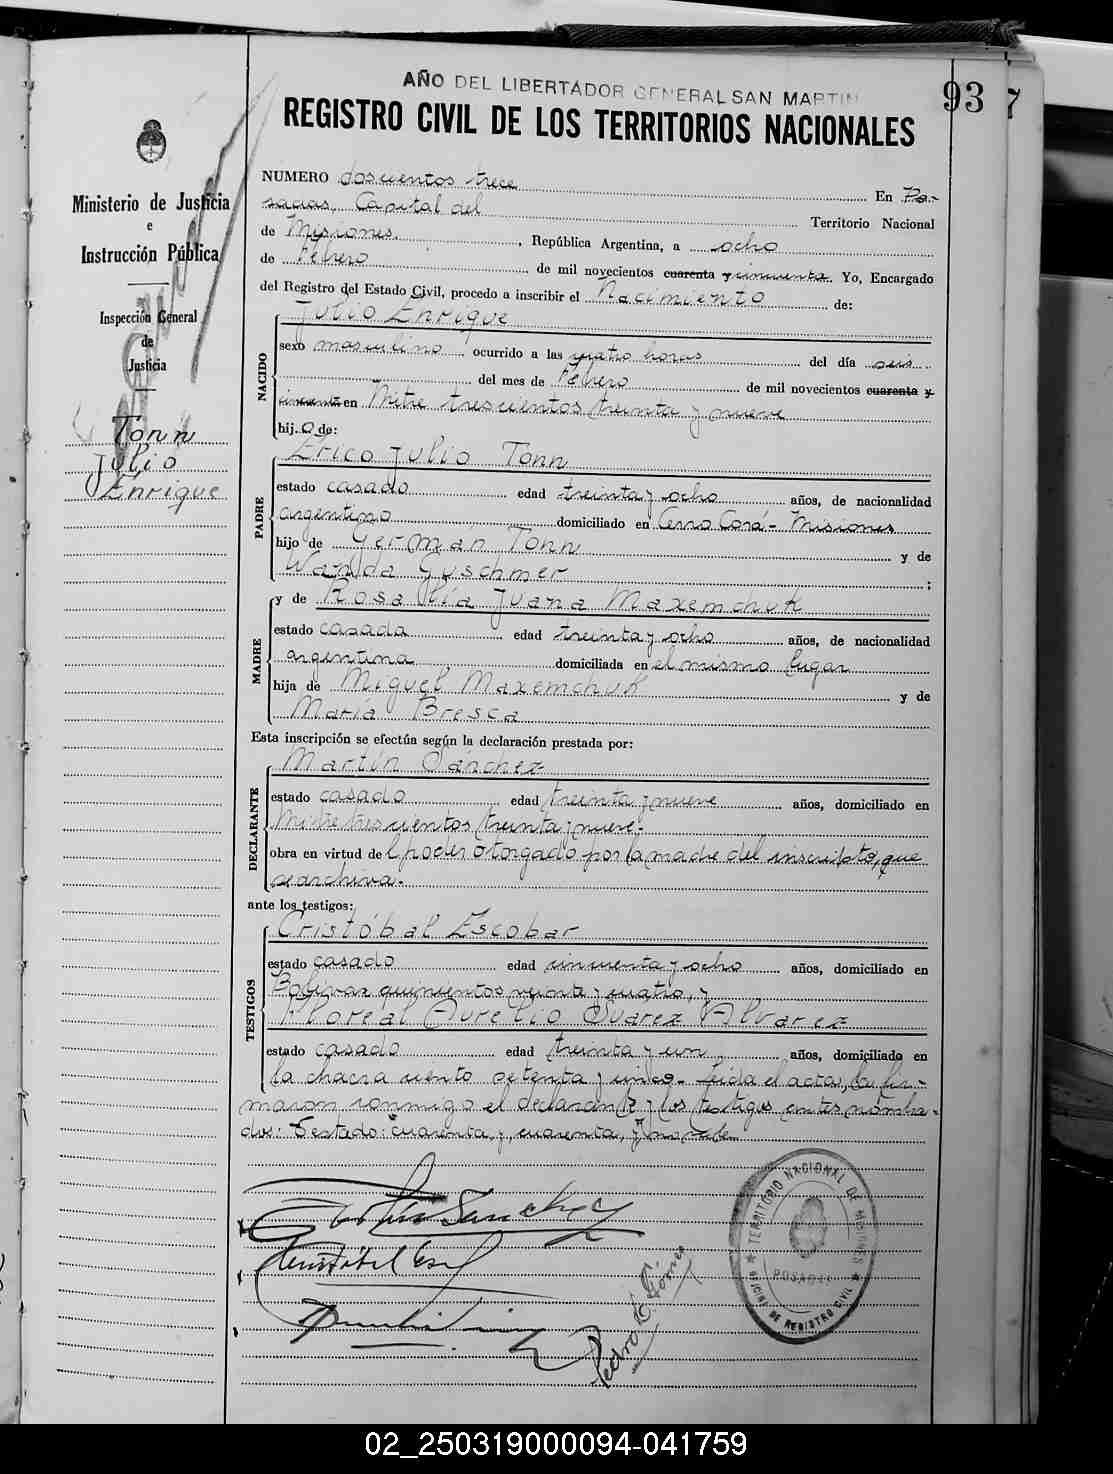 AÑO DEL LIBERTADOR GENERAL SAN MARTIN
93 7
REGISTRO CIVIL DE LOS TERRITORIOS NACIONALES
Ministerio de Justicia
e
Instrucción Pública
Inspección General
de
Justicia
Tonn
Julio
Enrique
NÚMERO doscientos trece En Po-
sadas, Capital del Territorio Nacional
de Misiones, República Argentina, a ocho
de Febrero de mil novecientos cuarenta y cincuenta. Yo, Encargado
del Registro del Estado Civil, procedo a inscribir el Nacimiento de:
NACIDO
Julio Enrique
sexo masculino ocurrido a las cuatro horas del día seis
del mes de Febrero de mil novecientos cuarenta y
cincuenta en Mitre trescientos treinta y nueve
hij o de:
PADRE
Erico Julio Tonn
estado casado edad treinta y ocho años, de nacionalidad
argentino domiciliado en Cerro Corá - Misiones
hijo de Germán Tonn y de
Wanda Guschmer ;
MADRE
y de Rosa lía Juana Maxemchuk
estado casada edad treinta y ocho años, de nacionalidad
argentina domiciliada en el mismo lugar
hija de Miguel Maxemchuk y de
María Bresca
Esta inscripción se efectúa según la declaración prestada por:
DECLARANTE
Martín Sánchez
estado casado edad treinta y nueve años, domiciliado en
Mitre trescientos treinta y nueve.
obra en virtud del poder otorgado por la madre del inscripto, que
se archiva.
ante los testigos:
TESTIGOS
Cristóbal Escobar
estado casado edad cincuenta y ocho años, domiciliado en
Bolívar quinientos veinte y cuatro, y
Floreal Aurelio Suarez Alvarez
estado casado edad treinta y un años, domiciliado en
la chacra ciento setenta y cinco. Leída el acta, la fir-
maron conmigo el declarante y los testigos antes nombra-
dos: Testado: "cuarenta, y, cuarenta, y" no vale.
Sanchez
Cristóbal Esc
Pedro E. Gómez
TERRITORIO NACIONAL DE MISIONES
POSADAS
OFICINA DE REGISTRO CIVIL
02_250319000094-041759